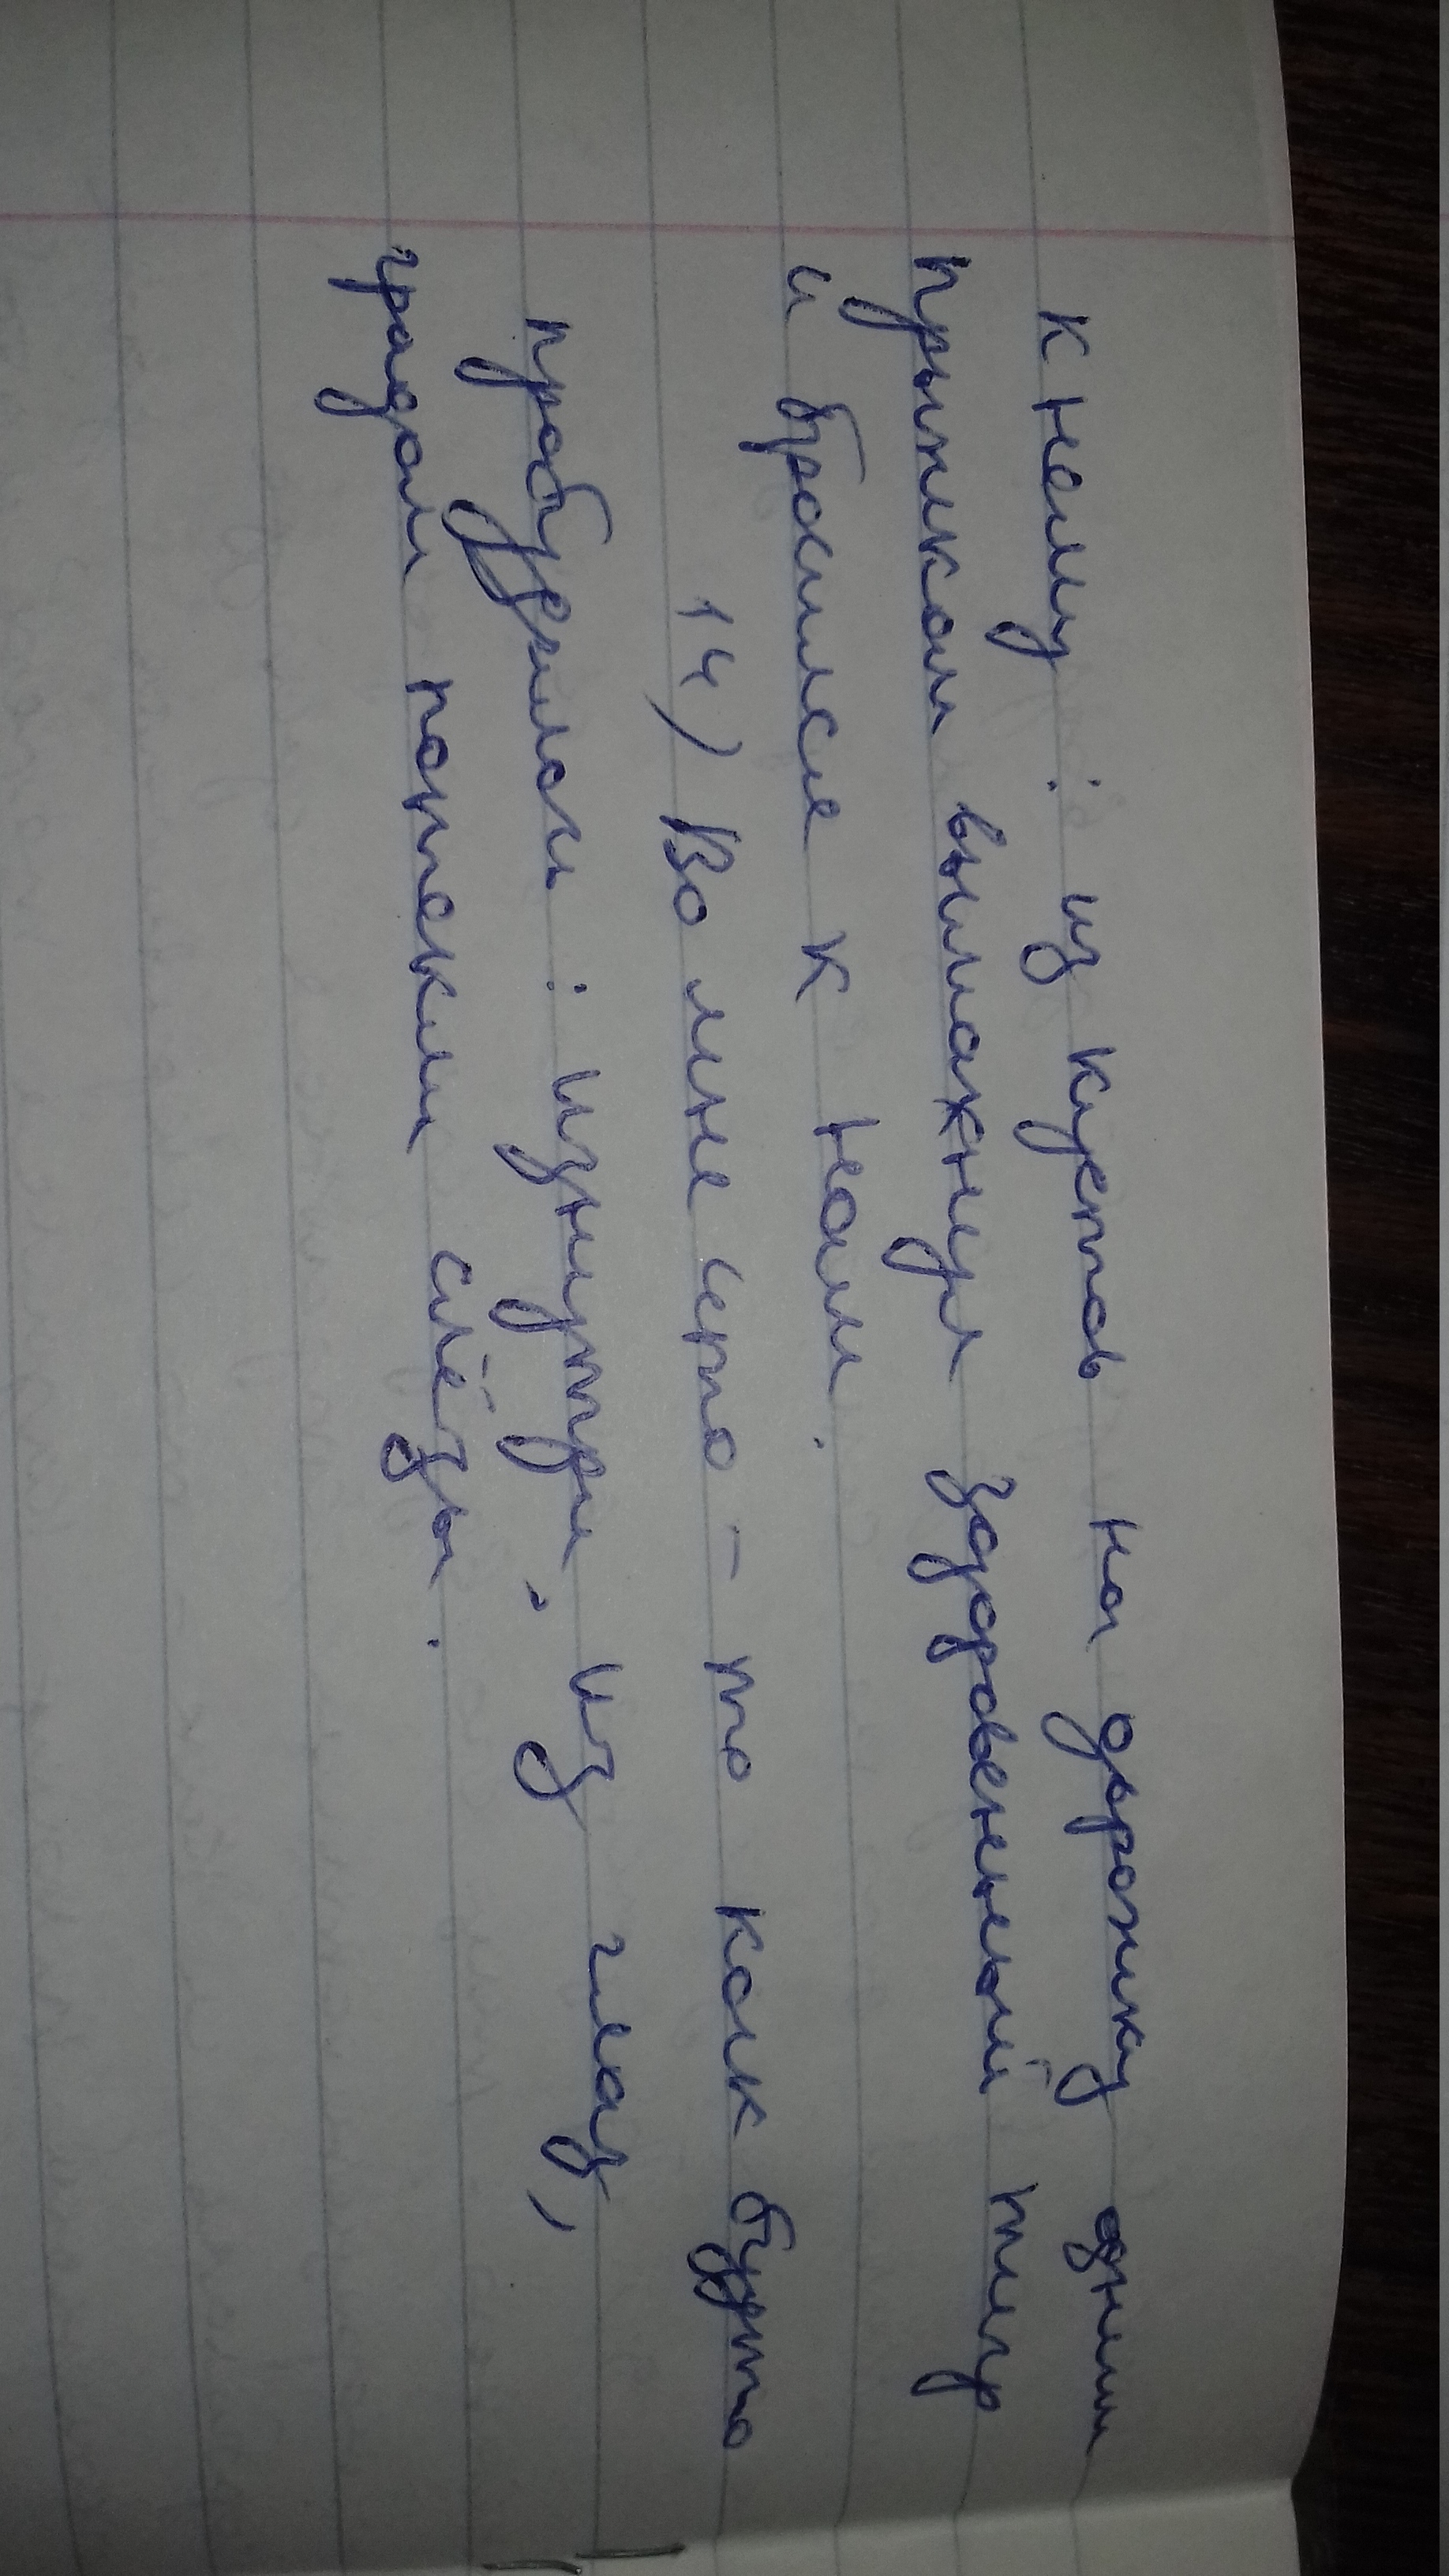 к нему : из кустов на дорожку одним
прыжком вымахнул здоровенный тигр
и бросился к нам.
14) Во мне что-то как будто
пробурило : изнутри, из глаз,
градом потекли слёзы.